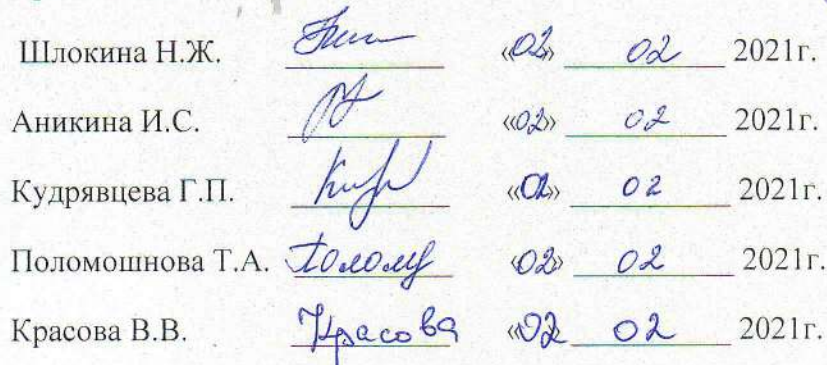 Шлокина Н.Ж. «02» 02 2021г.
Аникина И.С. «02» 02 2021г.
Кудрявцева Г.П. «02» 02 2021г.
Поломошнова Т.А. Полому «02» 02 2021г.
Красова В.В. Красова «02 02 2021г.